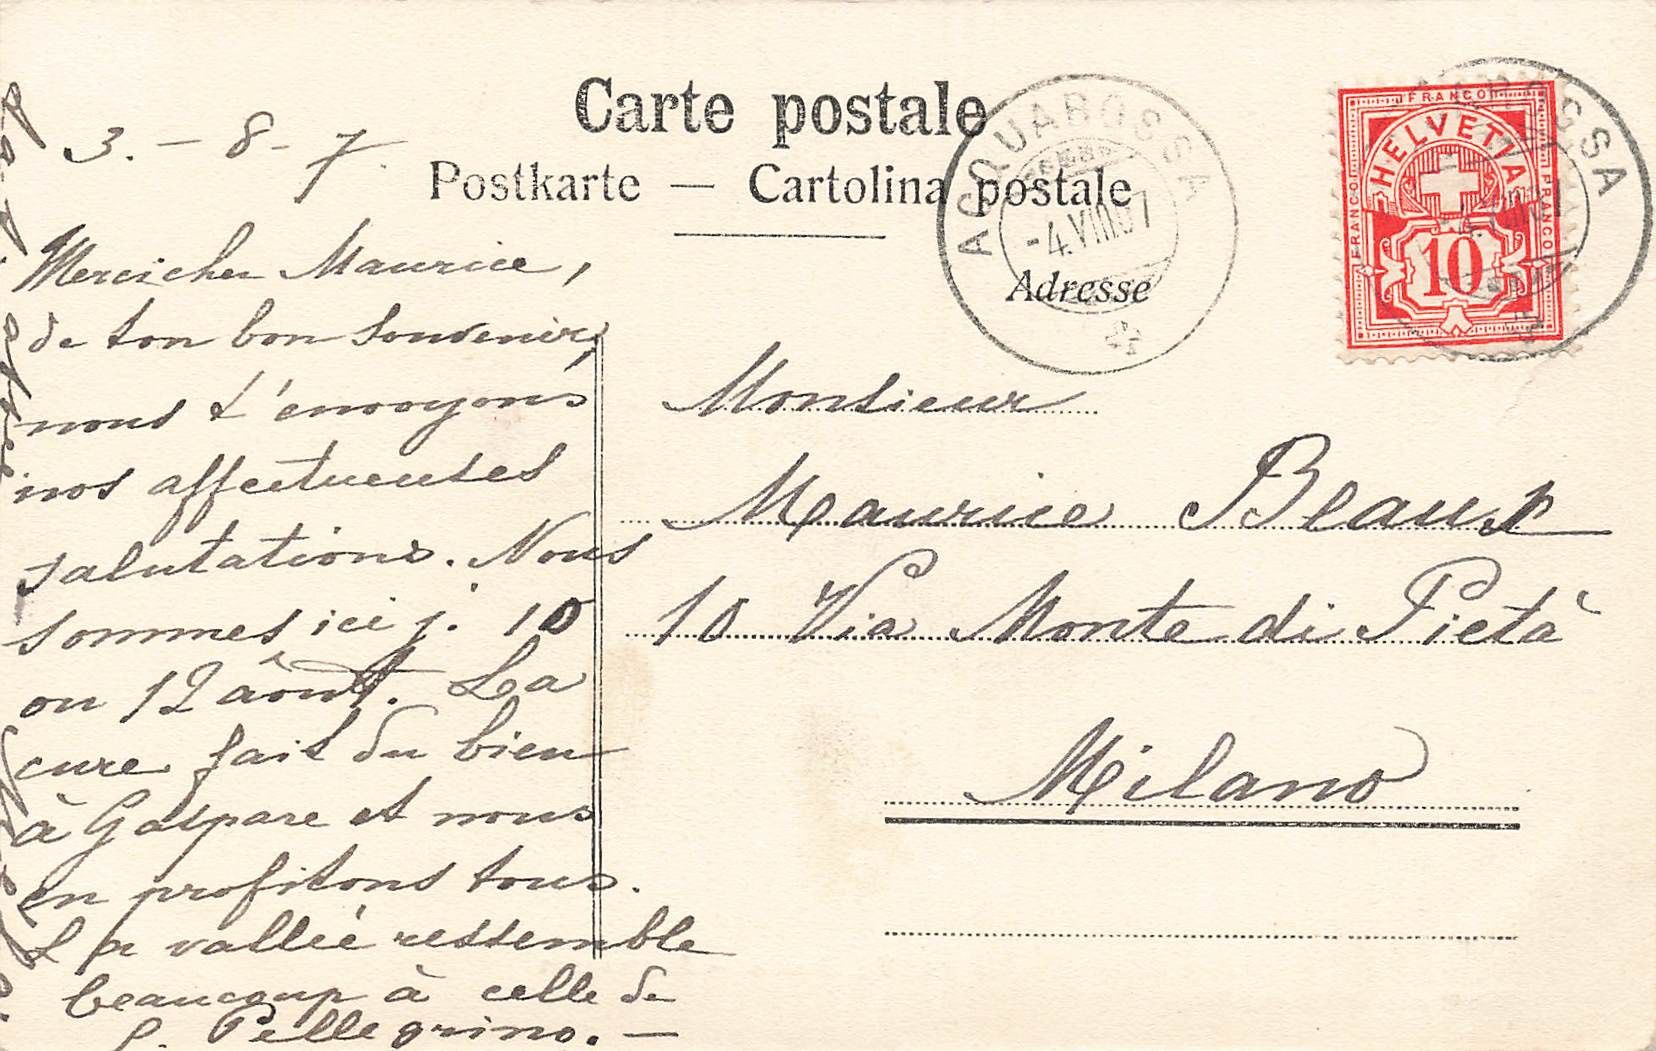 Carte postale
Postkarte — Cartolina postale
Adresse
ACQUAROSSA
-4.VIII.07
FRANCO
FRANCO
FRANCO
HELVETIA
10
ROSSA
3. - 8 - 7.
Merci cher Maurice,
de ton bon souvenir,
nous t'envoyons
nos affectueuses
salutations. Nous
sommes ici j. 10
ou 12 août. La
cure fait du bien
à Gaspare et nous
en profitons tous.
La vallée ressemble
beaucoup à celle de
S. Pellegrino. —
Monsieur
Maurice Beaux
10 Via Monte di Pietà
Milano